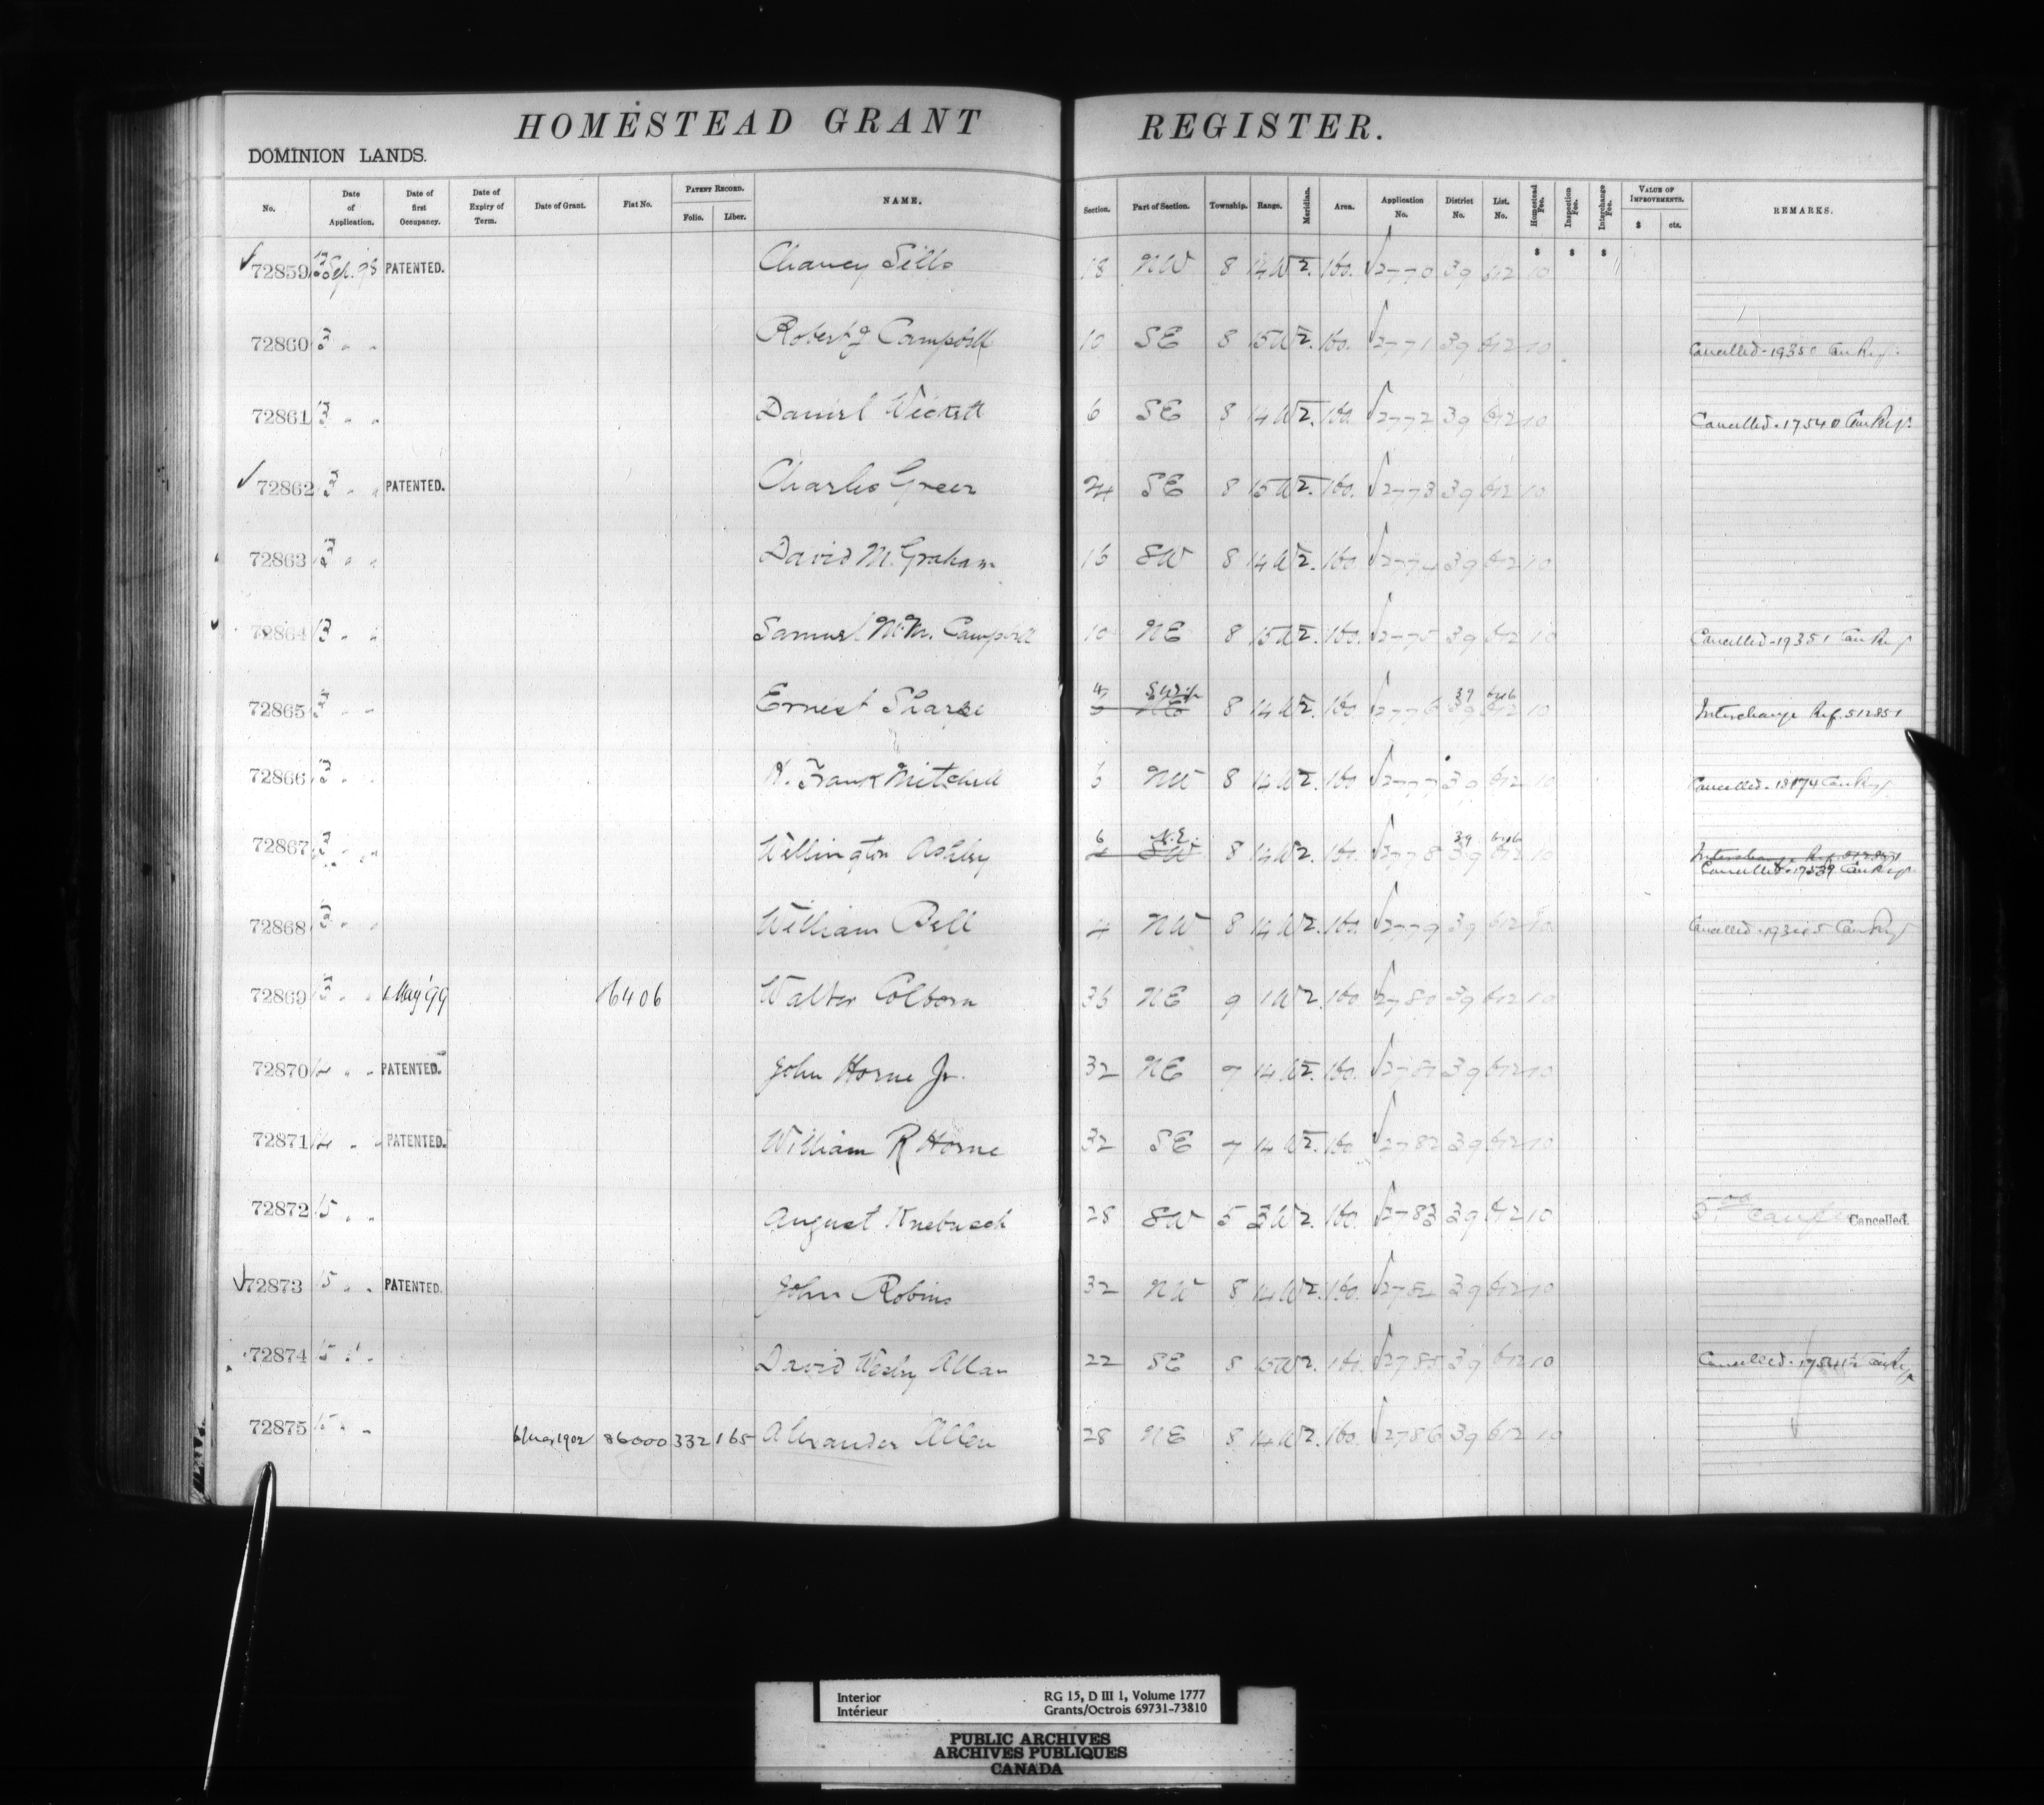 HOMESTEAD GRANT REGISTER.
DOMINION LANDS.
No. Date of Application. Date of first Occupancy. Date of Expiry of Term. Date of Grant. Fiat No. PATENT RECORD. Folio. Liber. NAME. Section. Part of Section. Township. Range. Meridian. Area. Application No. District No. List. No. Homestead Fee. Inspection Fee. Interchange Fee. VALUE OF IMPROVEMENTS. $ cts. REMARKS.
$ $ $
72859 Sep. 98 PATENTED. Chancy Sills 18 NW 8 14 W 2. 160. 2770 39 612 10
72860 " " Robert J Campbell 10 SE 8 15 W 2. 160. 2771 39 612 10 Cancelled - 19350 Can Ref.
72861 13 " " Daniel Wickett 6 SE 8 14 W 2. 160 2772 39 612 10 Cancelled - 17540 Can Ref.
72862 " " PATENTED. Charles Greer 24 SE 8 15 W 2. 160. 2773 39 612 10
72863 " " David M. Graham 16 SW 8 14 W 2. 160 2774 39 612 10
72864 13 " " Samuel Campbell 10 NE 8 15 W 2. 160. 2775 39 612 10 Cancelled - 19351 Can Ref
72865 " " Ernest Sharpe NE 8 14 W 2. 160 2776 39 612 10 Interchange Ref. 512851
72866 13 " H. Frank Mitchell 6 NW 8 14 W 2. 160 2777 39 612 10 Cancelled - Can Ref
72867 " " Wellington Ashby 6 N.E. 4 SW 8 14 W 2. 160. 2778 39 612 10 Interchange Ref.
Cancelled - 17539 Can Ref.
72868 " " William Bell 4 NW 8 14 W 2. 160. 2779 39 612 10 Cancelled Can Ref
72869 " " May '99 16406 Walter Colborn 36 NE 9 1 W 2. 160 2780 39 612 10
72870 14 " " PATENTED. John Horne Jr. 32 NE 7 14 W 2. 160. 2781 39 612 10
72871 14 " " PATENTED. William R Horne 32 SE 7 14 W 2. 160 2782 39 612 10
72872 15 " " August Knebusch 28 SW 5 3 W 2. 160. 2783 39 612 10 Cancelled.
72873 15 " " PATENTED. John Robins 32 NW 8 14 W 2. 160. 2784 39 612 10
72874 15 " " David Wesley Allan 22 SE 8 15 W 2. 160. 2785 39 612 10 Cancelled - Can Ref
72875 15 " " 1902 86000 332 165 Alexander Allan 28 NE 8 14 W 2. 160. 2786 39 612 10
Interior RG 15, D III 1, Volume 1777
Intérieur Grants/Octrois 69731-73810
PUBLIC ARCHIVES
ARCHIVES PUBLIQUES
CANADA